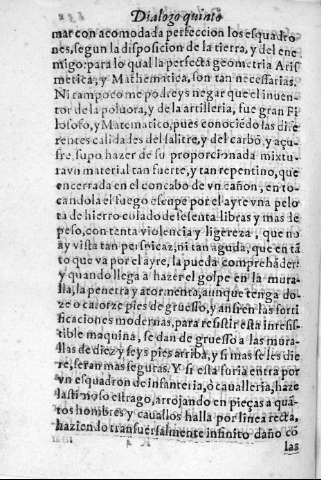 Dialogo quinto
mar con acomodada perfeccion los esquadro
nes, segun la disposicion de la tierra, y del ene
migo: para lo qual la perfecta geometria Aris
metica, y Mathematica, son tan necessarias.
Ni tampoco me podreys negar que el inuen
tor de la poluora, y de la artilleria, fue gran Fi
losofo, y Matematico, pues conociẽdo las dife
rentes calidades del salitre, y del carbõ, y açu-
fre, supo hazer de su proporcionada mixtu-
ra vn material tan fuerte, y tan repentino, que
encerrada en el concabo de vn cañon, en to-
candola el fuego escupe por el ayre vna pelo
ta de hierro colado de sesenta libras y mas de
peso, con tenta violencia y ligereza, que no
ay vista tan perspicaz, ni tan aguda, que en tã
to que va por el ayre, la pueda comprehẽder:
y quando llega a hazer el golpe en la mura-
lla, la penetra y atormenta, aunque tenga do-
ze o catorze pies de gruesso, y ansi en las forti
ficaciones modernas, para resistir esta irresis-
tible maquina, se dan de gruesso a las mura-
llas de diez y seys pies arriba, y si mas se les die
re, seran mas seguras. Y si esta furia entra por
vn esquadron de infanteria, ò caualleria, haze
lastimoso estrago, arrojando en pieças a quã-
tos hombres y cauallos halla por linea recta,
haziendo transuersalmente infinito daño cõ
las